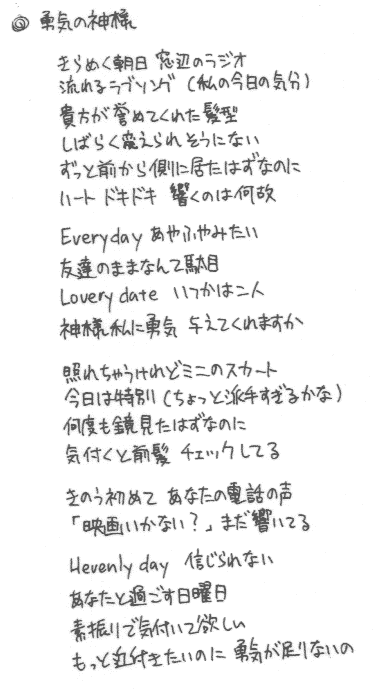 ◎ 勇気の神様
きらめく朝日 窓辺のラジオ
流れるラブソング (私の今日の気分)
貴方が誉めてくれた髪型
しばらく変えられそうにない
ずっと前から側に居たはずなのに
ハート ドキドキ 響くのは何故
Everyday あやふやみたい
友達のままなんて駄目
Lovery date いつかは二人
神様 私に勇気 与えてくれますか
照れちゃうけれどミニのスカート
今日は特別 (ちょっと派手すぎるかな)
何度も鏡見たはずなのに
気付くと前髪 チェックしてる
きのう初めて あなたの電話の声
「映画いかない?」まだ響いてる
Hevenly day 信じられない
あなたと過ごす日曜日
素振りで気付いて欲しい
もっと近付きたいのに 勇気が足りないの